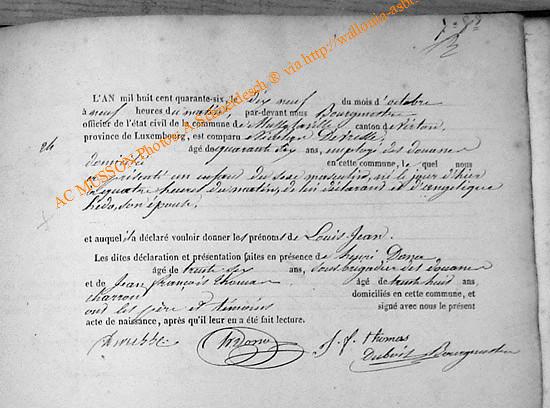 L'AN mil huit cent quarante-six, le dix neuf du mois d'octobre
à neuf heures du matin, par-devant nous Bourgmestre
officier de l'état civil de la commune de canton de Virton,
province de Luxembourg, est comparu
26
âgé de quarante six ans, employé des douanes
domicilié en cette commune, le quel nous
a présenté un enfant du sexe masculin, né le jour d'hier
à quatre heures du matin, de lui déclarant et d'angélique
son épouse,
et auquel il a déclaré vouloir donner les prénoms de Louis Jean.
Les dites déclaration et présentation faites en présence de henri
âgé de trente six ans, Sousbrigadier des douanes
et de Jean françois thomas âgé de trente huit ans,
charron domiciliés en cette commune, et
ont les père et témoins signé avec nous le présent
acte de naissance, après qu'il leur en a été fait lecture.
J. f. thomas
Dubois Bourgmestre
AC MUSSON Photos A. ® via http://wallonia-asb